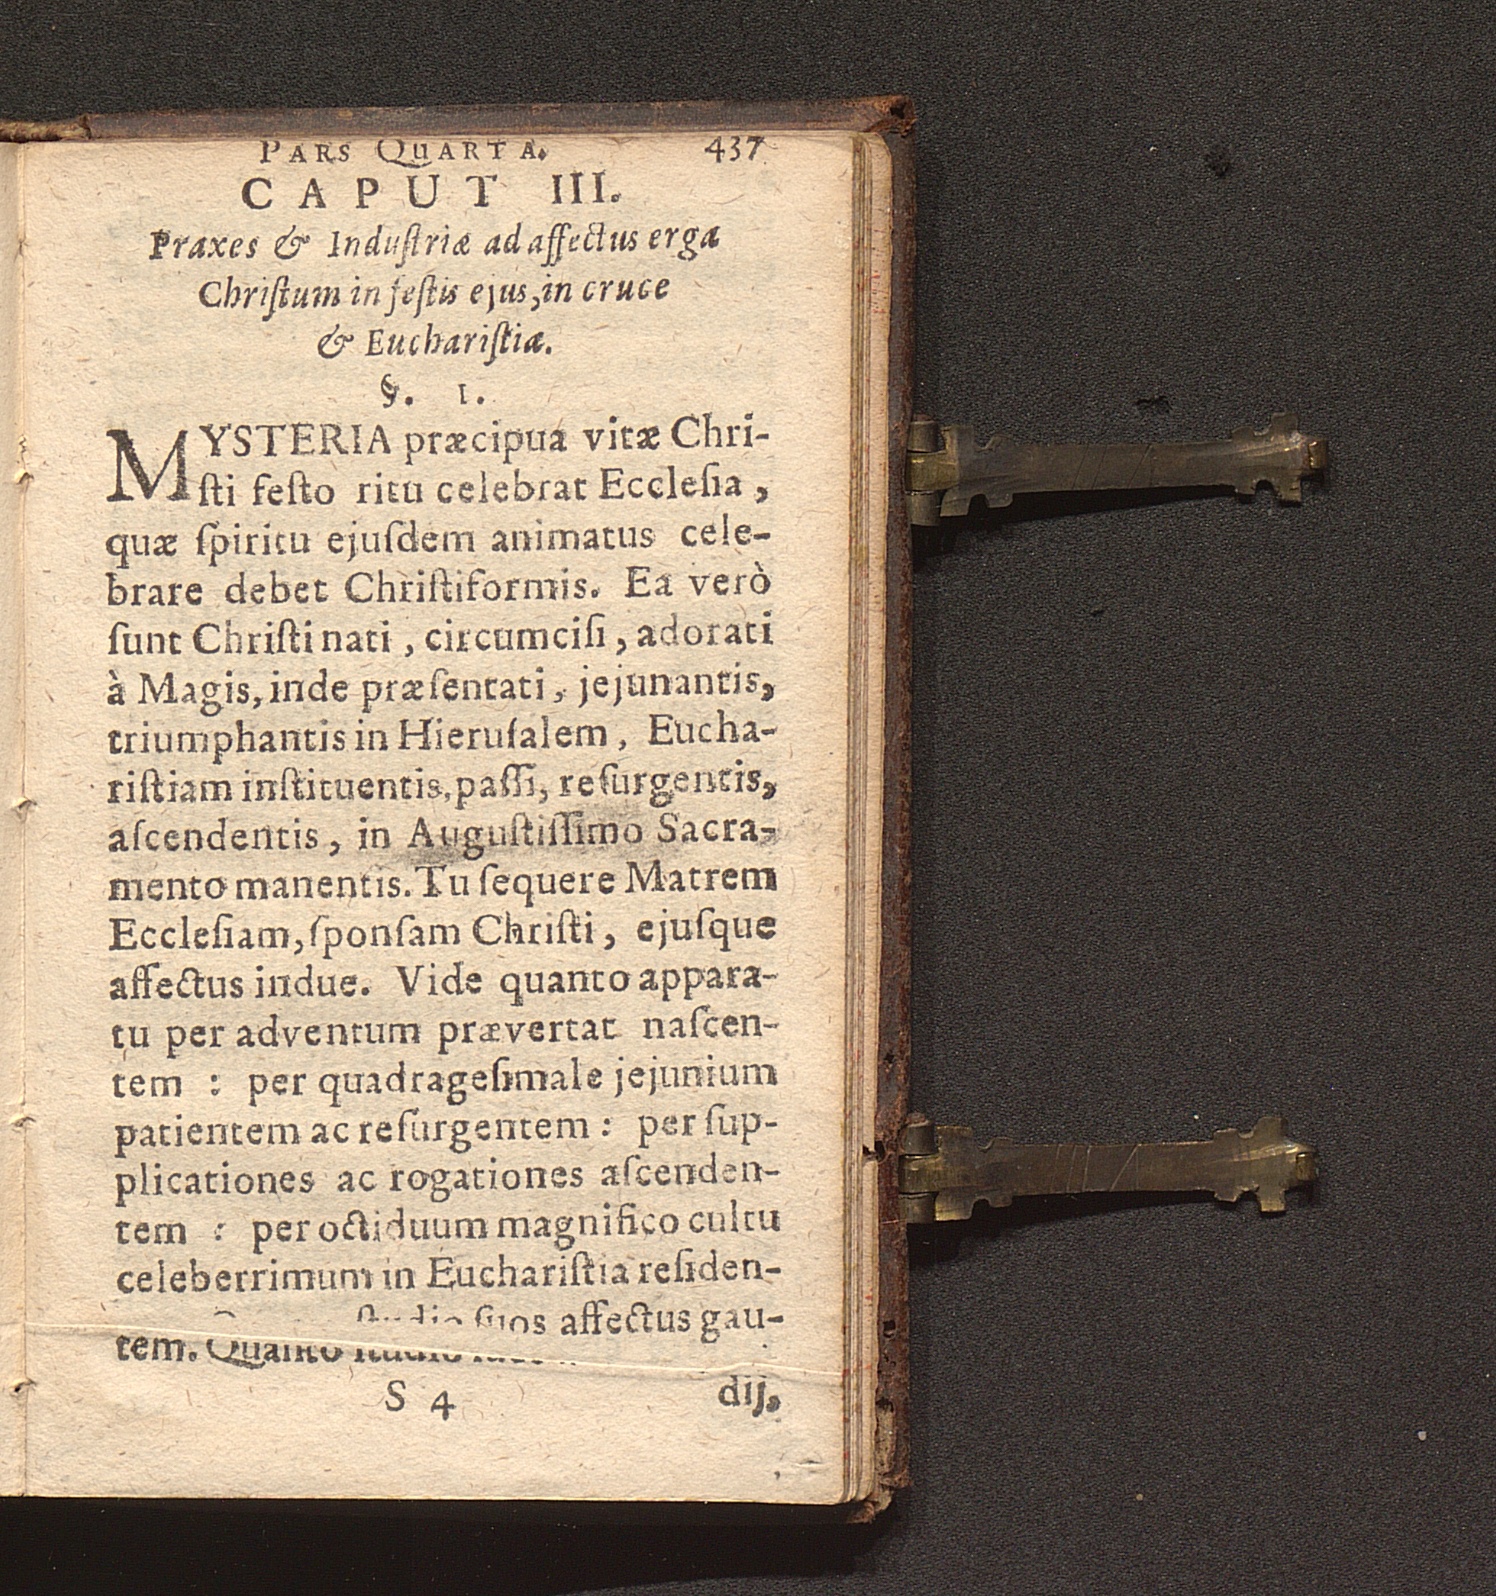 PARS QUARTA. 437
CAPUT III.
Praxes & Induſtriæ ad affectus erga
Chriſtum in feſtis ejus, in cruce
& Euchariſtia.
§. 1.
MYSTERIA præcipua vitæ Chri-
ſti feſto ritu celebrat Eccleſia,
quæ ſpiritu ejuſdem animatus cele-
brare debet Chriſtiformis. Ea verò
ſunt Chriſti nati, circumciſi, adorati
à Magis, inde præſentati, jejunantis,
triumphantis in Hieruſalem, Eucha-
riſtiam inſtituentis, paſſi, reſurgentis,
aſcendentis, in Auguſtiſſimo Sacra-
mento manentis. Tu ſequere Matrem
Eccleſiam, ſponſam Chriſti, ejuſque
affectus indue. Vide quanto appara-
tu per adventum prævertat naſcen-
tem : per quadrageſimale jejunium
patientem ac reſurgentem : per ſup-
plicationes ac rogationes aſcenden-
tem : per octiduum magnifico cultu
celeberrimum in Euchariſtia reſiden-
tem. Quanto ſtudio ſuos affectus gau-
S 4 dij,